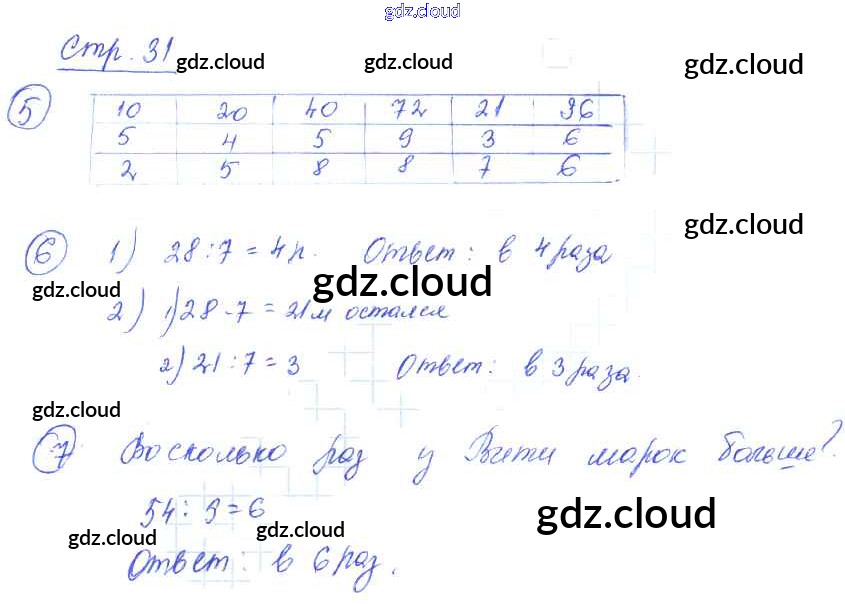 gdz.cloud
Стр. 31
gdz.cloud gdz.cloud gdz.cloud
5 10 20 40 72 21 36
5 4 5 9 3 6
2 5 8 8 7 6
gdz.cloud
6 1) 28:7=4р. Ответ: в 4 раза
gdz.cloud gdz.cloud
2) 1) 28-7=21м остался
2) 21:7=3 Ответ: в 3 раза.
gdz.cloud
7 Восколько раз у Вити марок больше?
54:9=6
gdz.cloud gdz.cloud gdz.cloud
Ответ: в 6 раз.